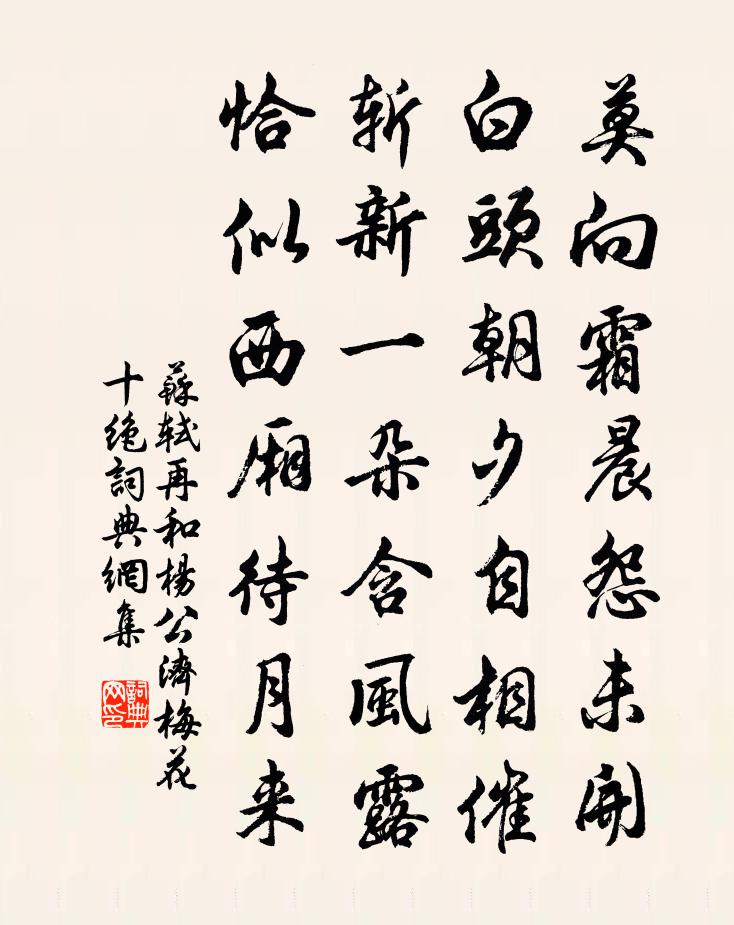 莫向霜晨怨未開
白頭朝夕自相催
斬新一朵含風露
恰似西厢待月来
蘇軾再和楊公濟梅花
十绝詞典網集
詞典網印